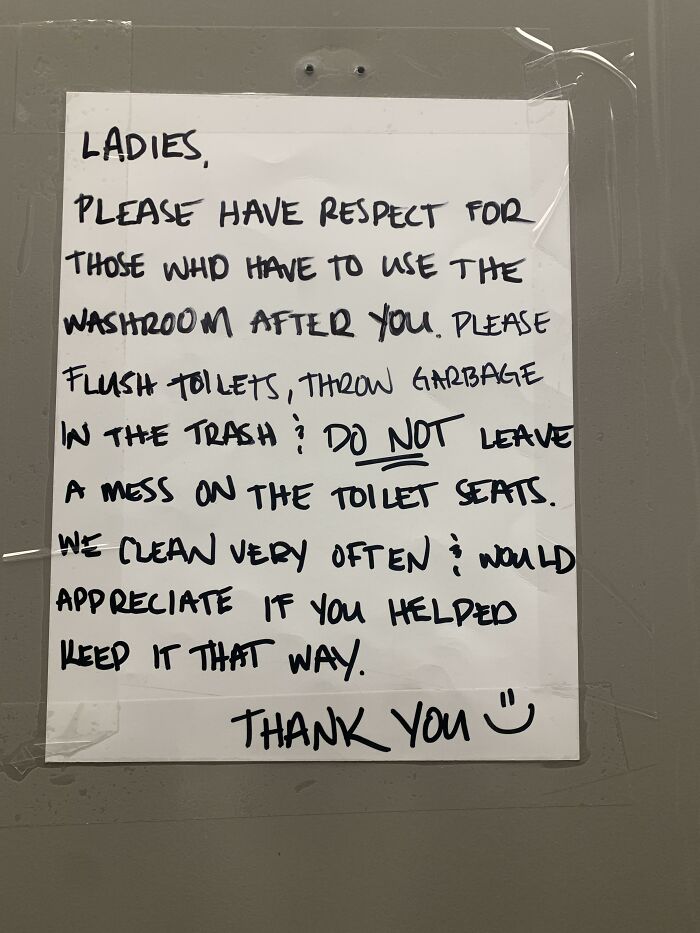 LADIES,
PLEASE HAVE RESPECT FOR
THOSE WHO HAVE TO USE THE
WASHROOM AFTER YOU. PLEASE
FLUSH TOILETS, THROW GARBAGE
IN THE TRASH & DO NOT LEAVE
A MESS ON THE TOILET SEATS.
WE CLEAN VERY OFTEN & WOULD
APPRECIATE IF YOU HELPED
KEEP IT THAT WAY.
THANK YOU